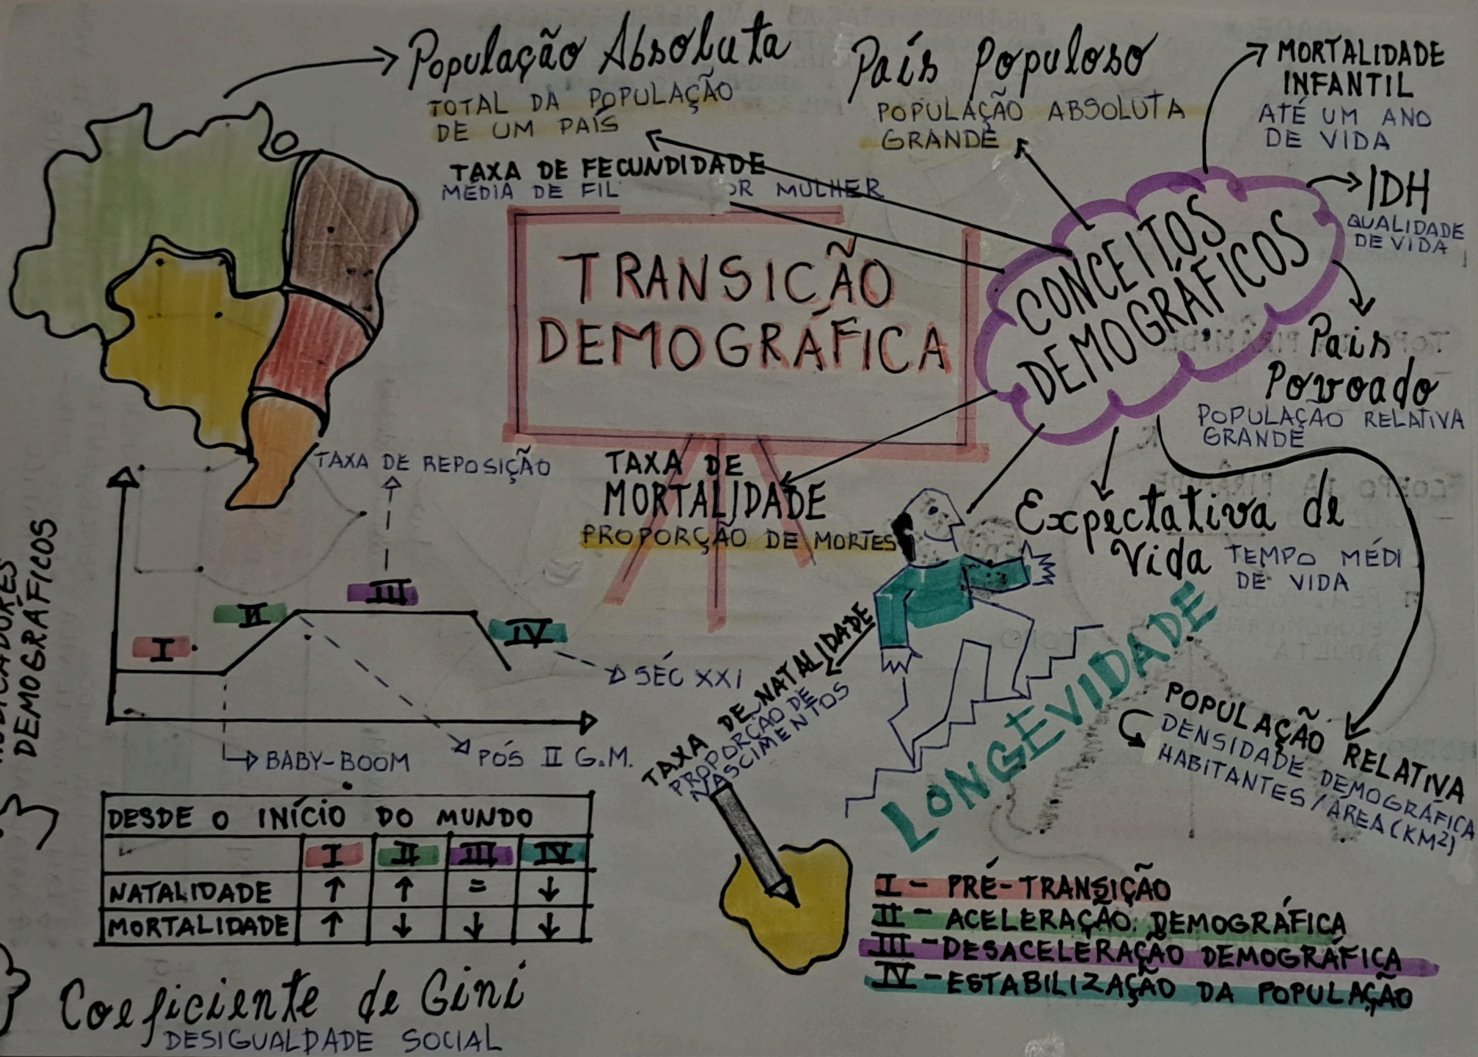 População Absoluta
TOTAL DA POPULAÇÃO
DE UM PAÍS
TAXA DE FECUNDIDADE
MÉDIA DE FIL OR MULHER
País Populoso
POPULAÇÃO ABSOLUTA
GRANDE
MORTALIDADE
INFANTIL
ATÉ UM ANO
DE VIDA
IDH
QUALIDADE
DE VIDA
CONCEITOS
DEMOGRÁFICOS
TRANSIÇÃO
DEMOGRÁFICA
País
Povoado
POPULAÇÃO RELATIVA
GRANDE
TAXA DE
MORTALIDADE
PROPORÇÃO DE MORTES
Expectativa de
Vida TEMPO MÉDI
DE VIDA
LONGEVIDADE
POPULAÇÃO RELATIVA
DENSIDADE DEMOGRÁFICA
HABITANTES/ÁREA (KM²)
TAXA DE NATALIDADE
PROPORÇÃO DE
NASCIMENTOS
TAXA DE REPOSIÇÃO
DEMOGRÁFICOS
I
II
III
IV
SÉC XXI
BABY-BOOM
PÓS II G.M.
DESDE O INÍCIO DO MUNDO
I II III IV
NATALIDADE ↑ ↑ = ↓
MORTALIDADE ↑ ↓ ↓ ↓
I - PRÉ-TRANSIÇÃO
II - ACELERAÇÃO DEMOGRÁFICA
III - DESACELERAÇÃO DEMOGRÁFICA
IV - ESTABILIZAÇÃO DA POPULAÇÃO
Coeficiente de Gini
DESIGUALDADE SOCIAL